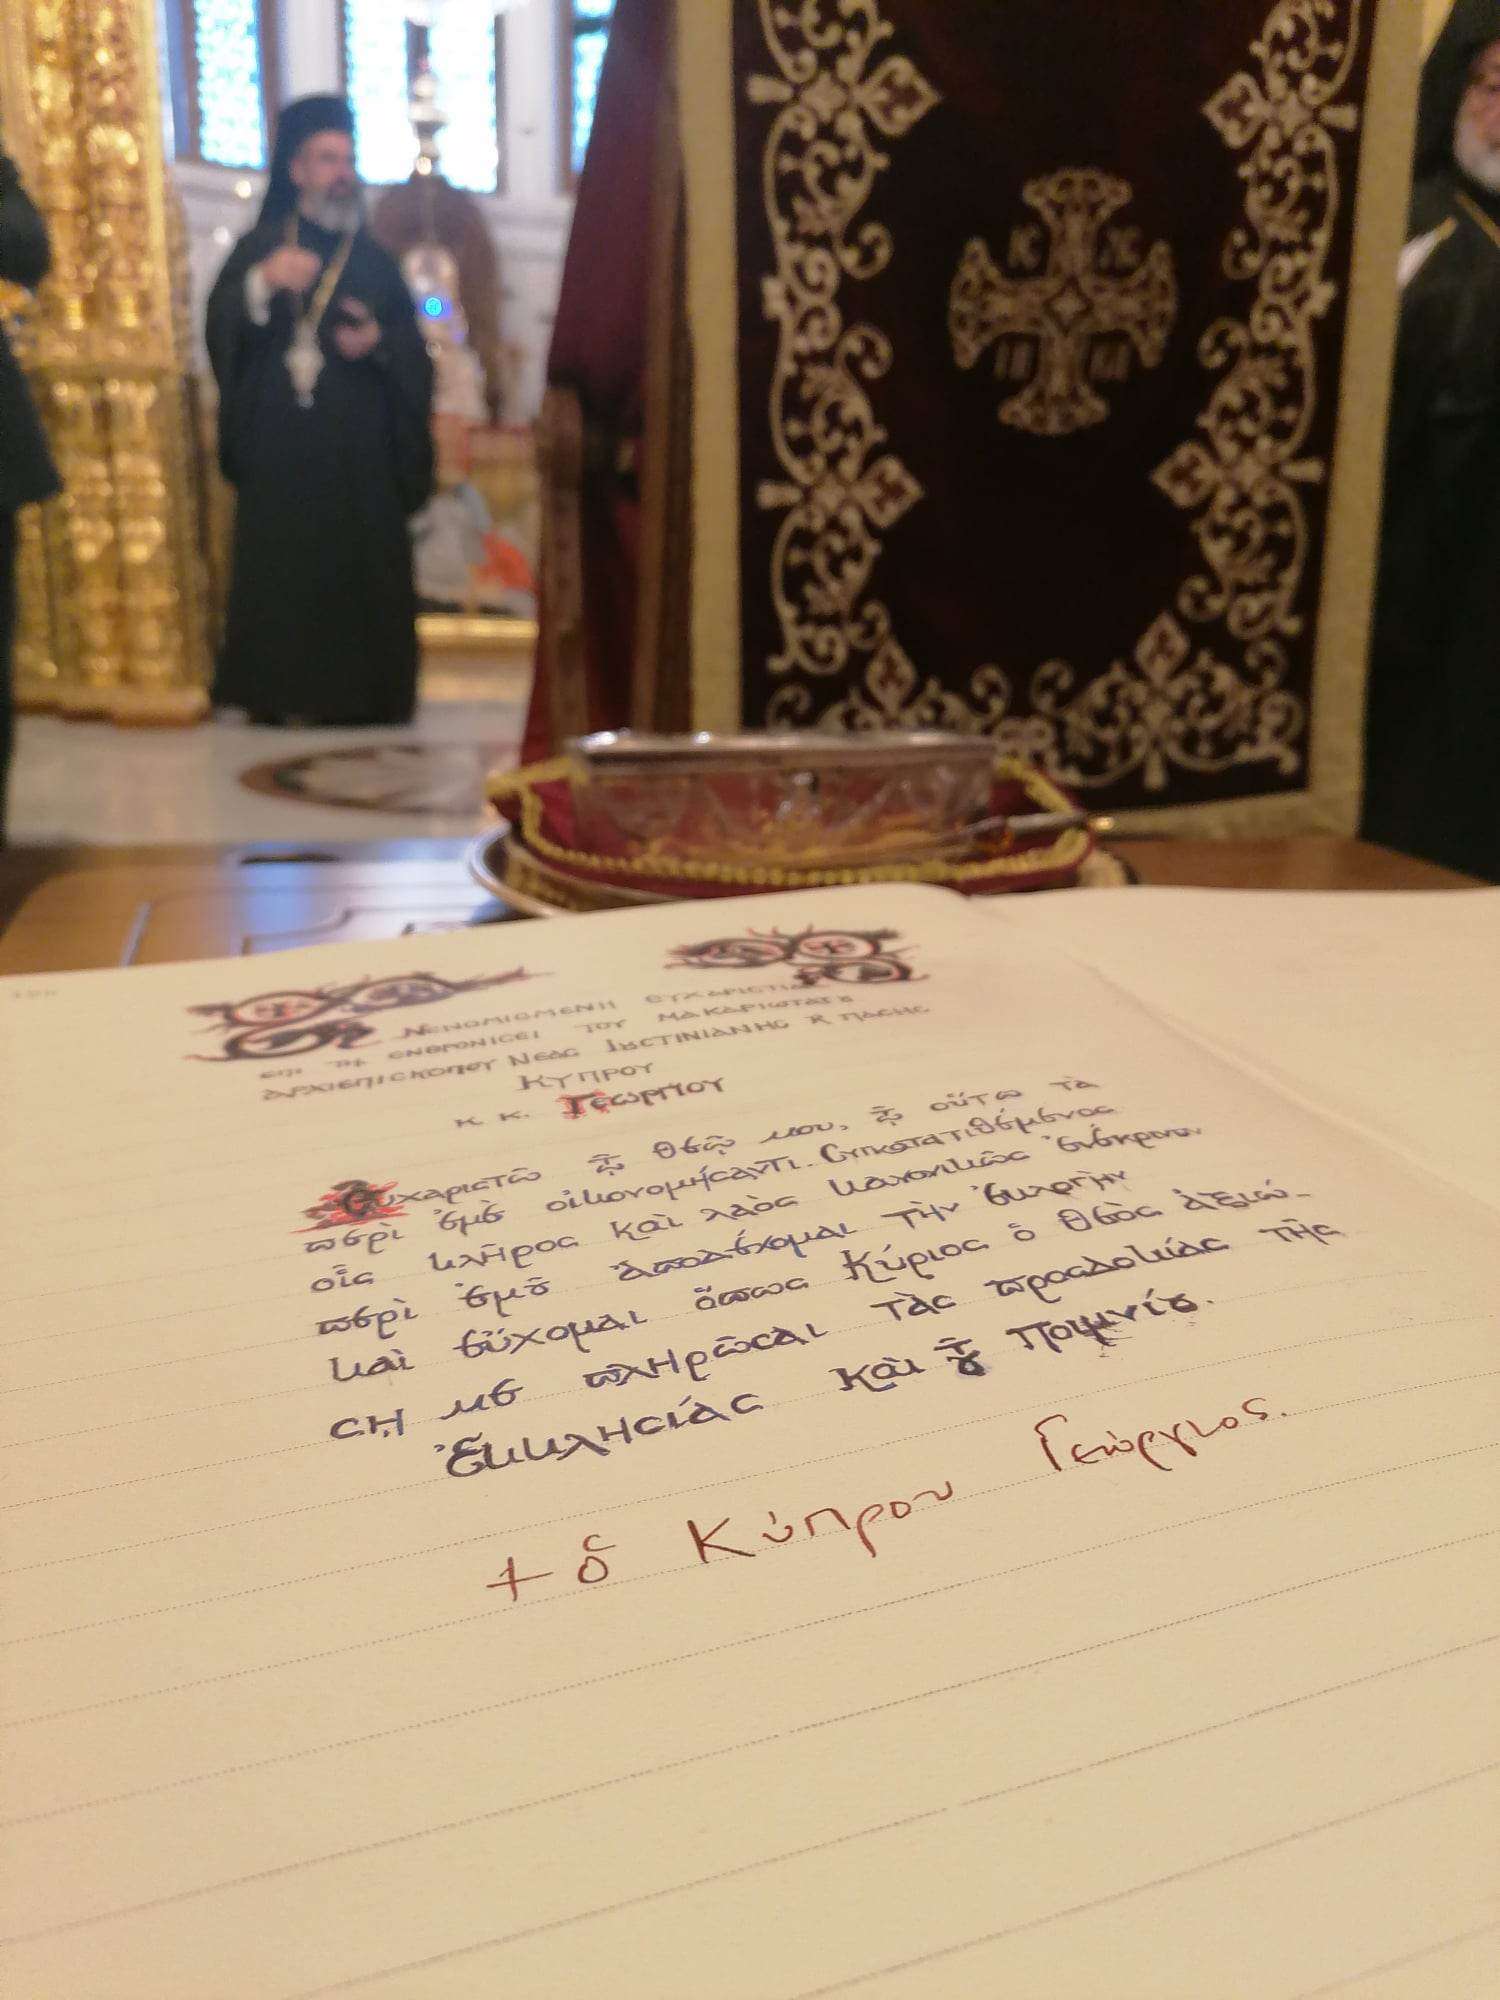 ΝΕΝΟΜΙΣΜΕΝΗ ΕΥΧΑΡΙΣΤΙΑ
ΕΠΙ ΤΗ ΕΝΘΡΟΝΙΣΕΙ ΤΟΥ ΜΑΚΑΡΙΩΤΑΤȣ
ΑΡΧΙΕΠΙΣΚΟΠΟΥ ΝΕΑΣ ΙȣΣΤΙΝΙΑΝΗΣ Κ ΠΑΣΗΣ
ΚΥΠΡΟΥ
κ. κ. ΓΕΩΡΓΙΟΥ
Εὐχαριστῶ τῷ Θεῷ μου, τῷ οὕτω τὰ
περὶ ἐμὲ οἰκονομήσαντι. Συγκατατιθέμενος
οἷς κλῆρος καὶ λαὸς κανονικῶς ἐνέκριναν
περὶ ἐμȣ͂ ἀποδέχομαι τὴν ἐκλογὴν
καὶ εὔχομαι ὅπως Κύριος ὁ Θεὸς ἀξιώ-
σῃ με πληρῶσαι τὰς προσδοκίας τῆς
Ἐκκλησίας καὶ τȣ͂ Ποιμνίȣ.
+ ὁ Κύπρου Γεώργιος.
ΙC XC
ΝΙ ΚΑ